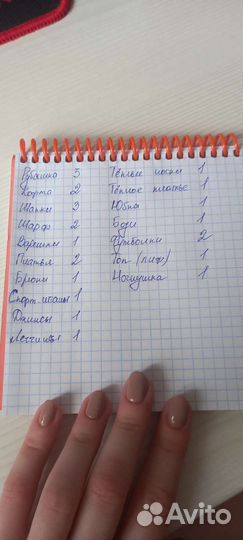 Рубашка 3
Кофта 2
Шапки 3
Шарф 2
Варежки 1
Платья 2
Брюки 1
Спорт. штаны 1
Джинсы 1
Леггинсы 1
Тёплые носки 1
Тёплое платье 1
Юбка 1
Боди 1
Футболки 2
Топ (лиф) 1
Ночнушка 1
Avito